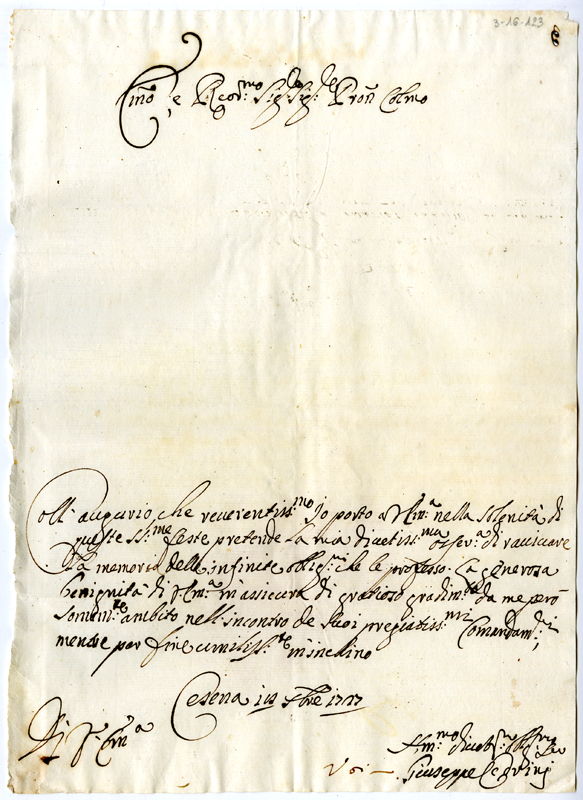 3-16-123
Em̃o, e R. Col.mo Sig. Sig.re Pron̄ Colmo
Coll' augurio, che reverentiss.mo Io porto a V. Em.a nella solennità di
queste SS.me feste pretende la mia divotiss.ma osserv.a di ravvivare
la memoria delle infinite obblig.ni che le professo. La generosa
benignità di V. Em.a m'assicura di grazioso gradim.to da me però
somm.te ambito nell'incontro de Suoi pregiatiss.mi Comandam.ti;
mentre per fine umiliss.te m'inchino
Cesena
Di V. Em.a
Giuseppe